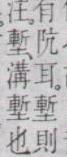 有阬耳。塹則
注。塹、溝塹也、